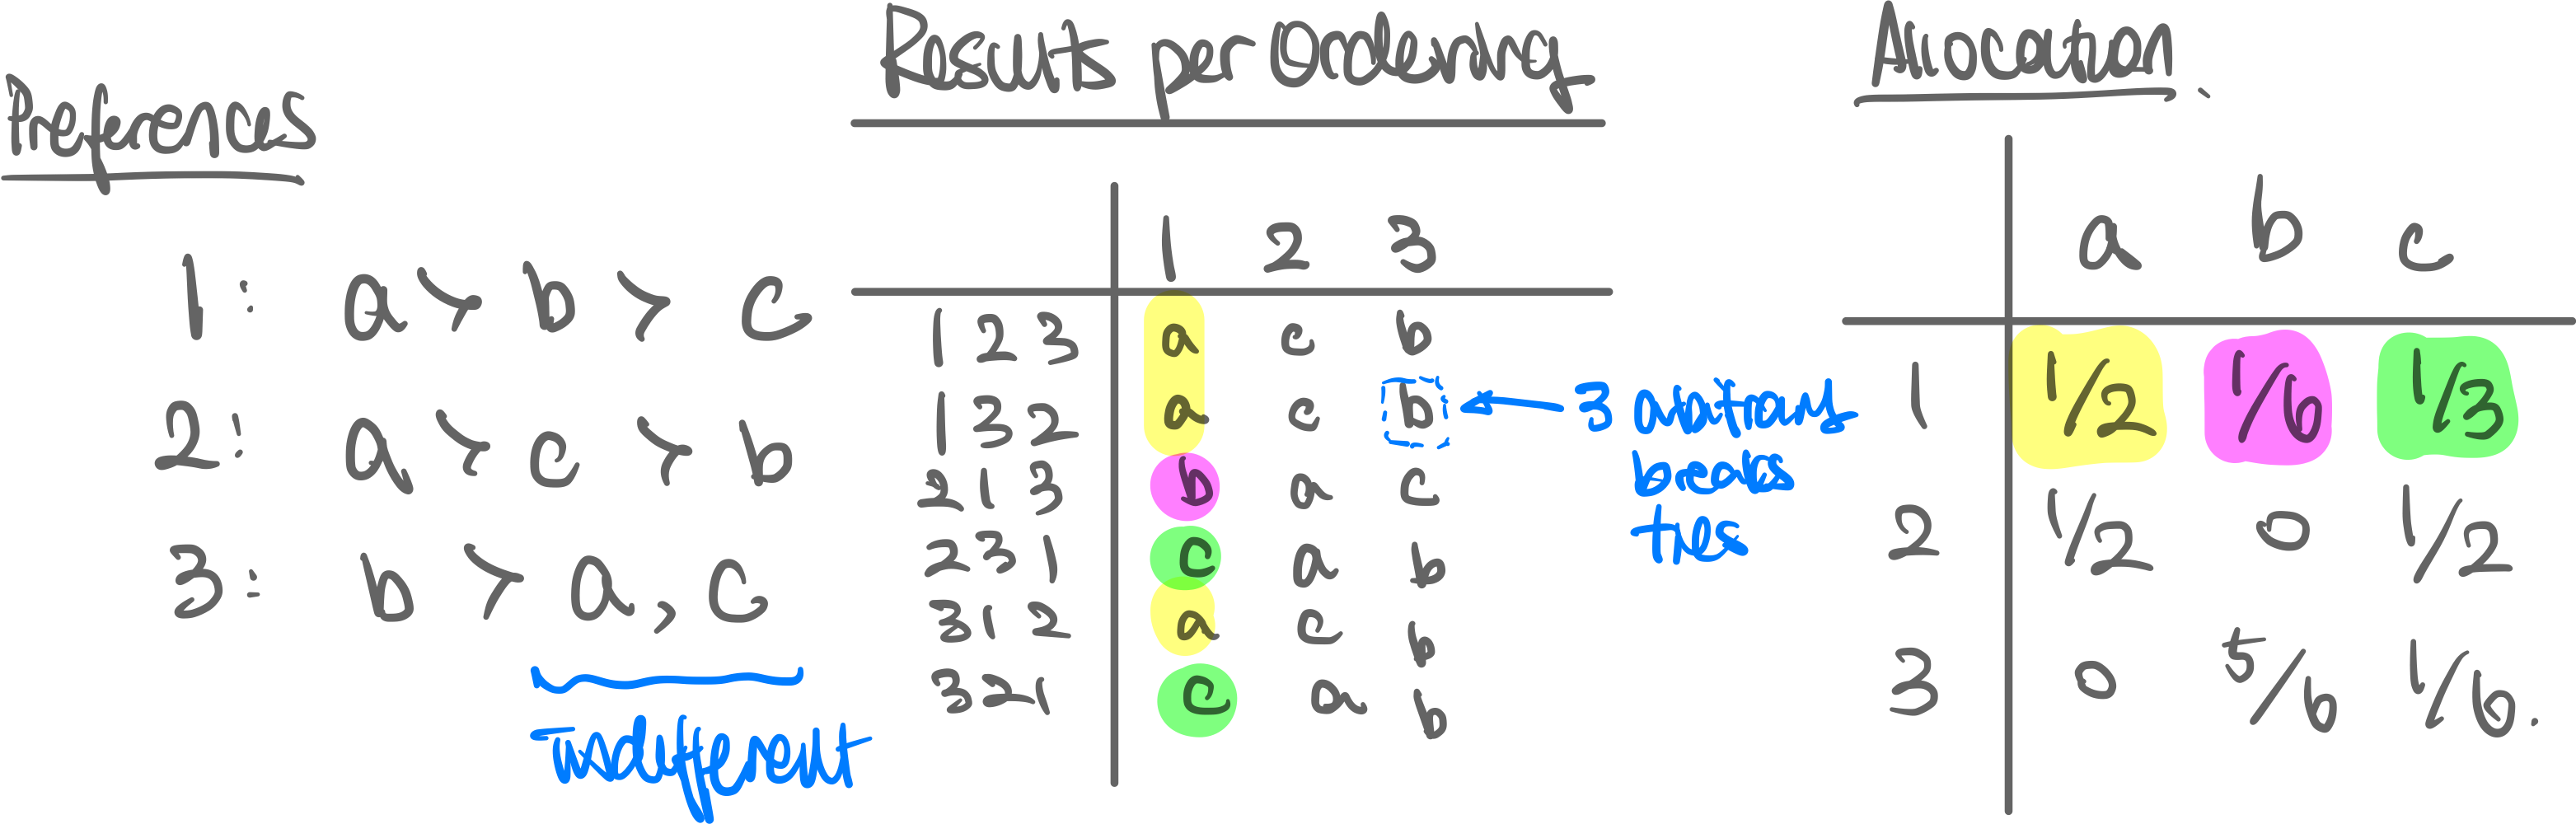 Preferences
1: a ≻ b ≻ c
2: a ≻ c ≻ b
3: b ≻ a, c
indifferent
Results per Ordering
1 2 3
1 2 3 a c b
1 3 2 a c b
2 1 3 b a c
2 3 1 c a b
3 1 2 a c b
3 2 1 c a b
3 arbitrary
breaks
ties
Allocation.
a b c
1 1/2 1/6 1/3
2 1/2 0 1/2
3 0 5/6 1/6.